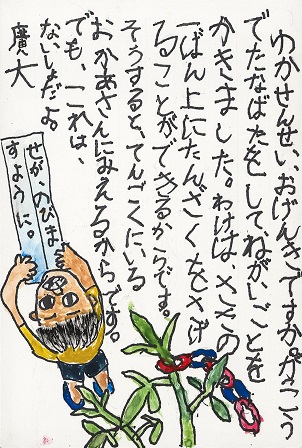 ゆかせんせい、おげんきですか。がっこう
でたなばたをしてねがいごとを
かきました。わけは、ささの
一ばん上にたんざくをさげ
ることができるからです。
そうすると、てんごくにいる
おかあさんにみえるからです。
でも、これは、
ないしょだよ。
廣大
せが、のびま
すように。